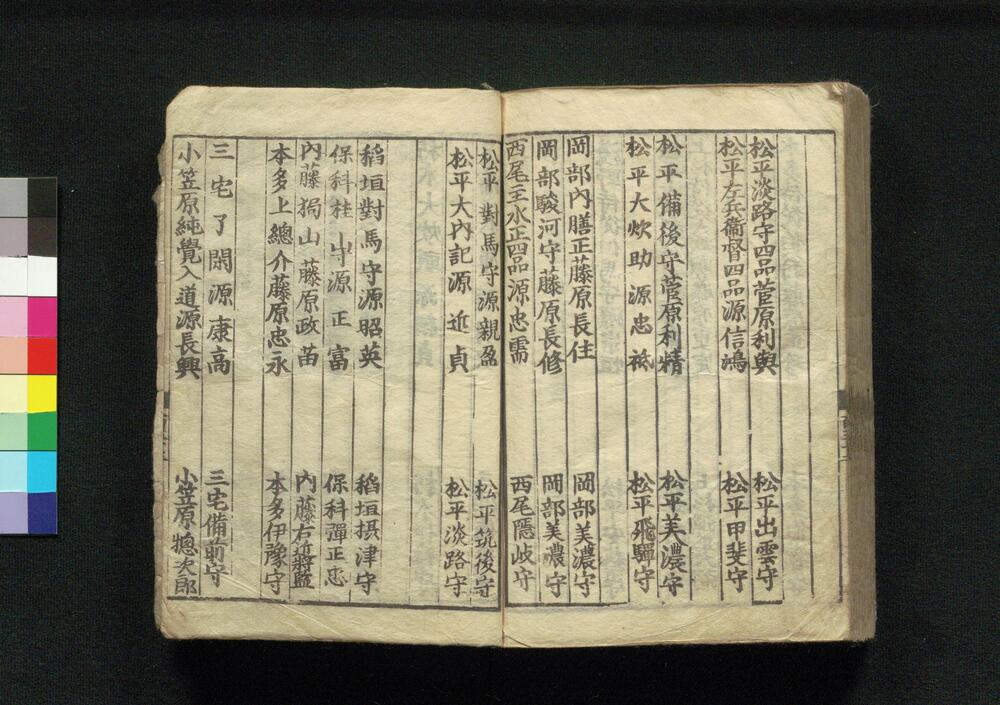 松平淡路守四品菅原利與 松平出雲守
松平左兵衞督四品源信鴻 松平甲斐守
松平備後守菅原利精 松平美濃守
松平大炊助源忠祇 松平飛驒守
岡部內膳正藤原長住 岡部美濃守
岡部駿河守藤原長修 岡部美濃守
西尾主水正四品源忠需 西尾隱岐守
松平對馬守源親盈 松平筑後守
松平大內記源近貞 松平淡路守
稻垣對馬守源昭英 稻垣摂津守
保科桂山源正富 保科彈正忠
內藤獨山藤原政苗 內藤右近將監
本多上總介藤原忠永 本多伊豫守
三宅了閑源康高 三宅備前守
小笠原純覺入道源長興 小笠原惣次郎